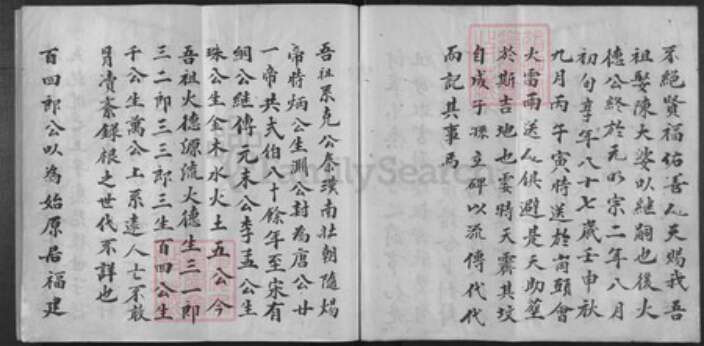 不絕賢福佑善人天賜我吾
祖娶陳大婆以継嗣也後火
德公終於元明宗二年八月
初旬享年八十七歲壬申秋
九月丙午寅時送於崗頭會
大雷雨送人俱避是天助塟
於斯吉地也霎時天霽其坟
自成于孫立碑以流傳代代
而記其事焉
吾祖累克公秦漢南北朝隨煬
帝時炳公生淵公封為唐公廿
一帝共弍伯八十餘年至宋有
綱公継傳元末公李孟公生
珠公生金木水火土五公今
吾祖火德源流火德生三一郎
三二郎三三郎三三生百四公生
千公生萬公上系遠人亡不敢
冐凟紊録根之世代不詳也
百四郎公以為始原居福建
FamilySearch